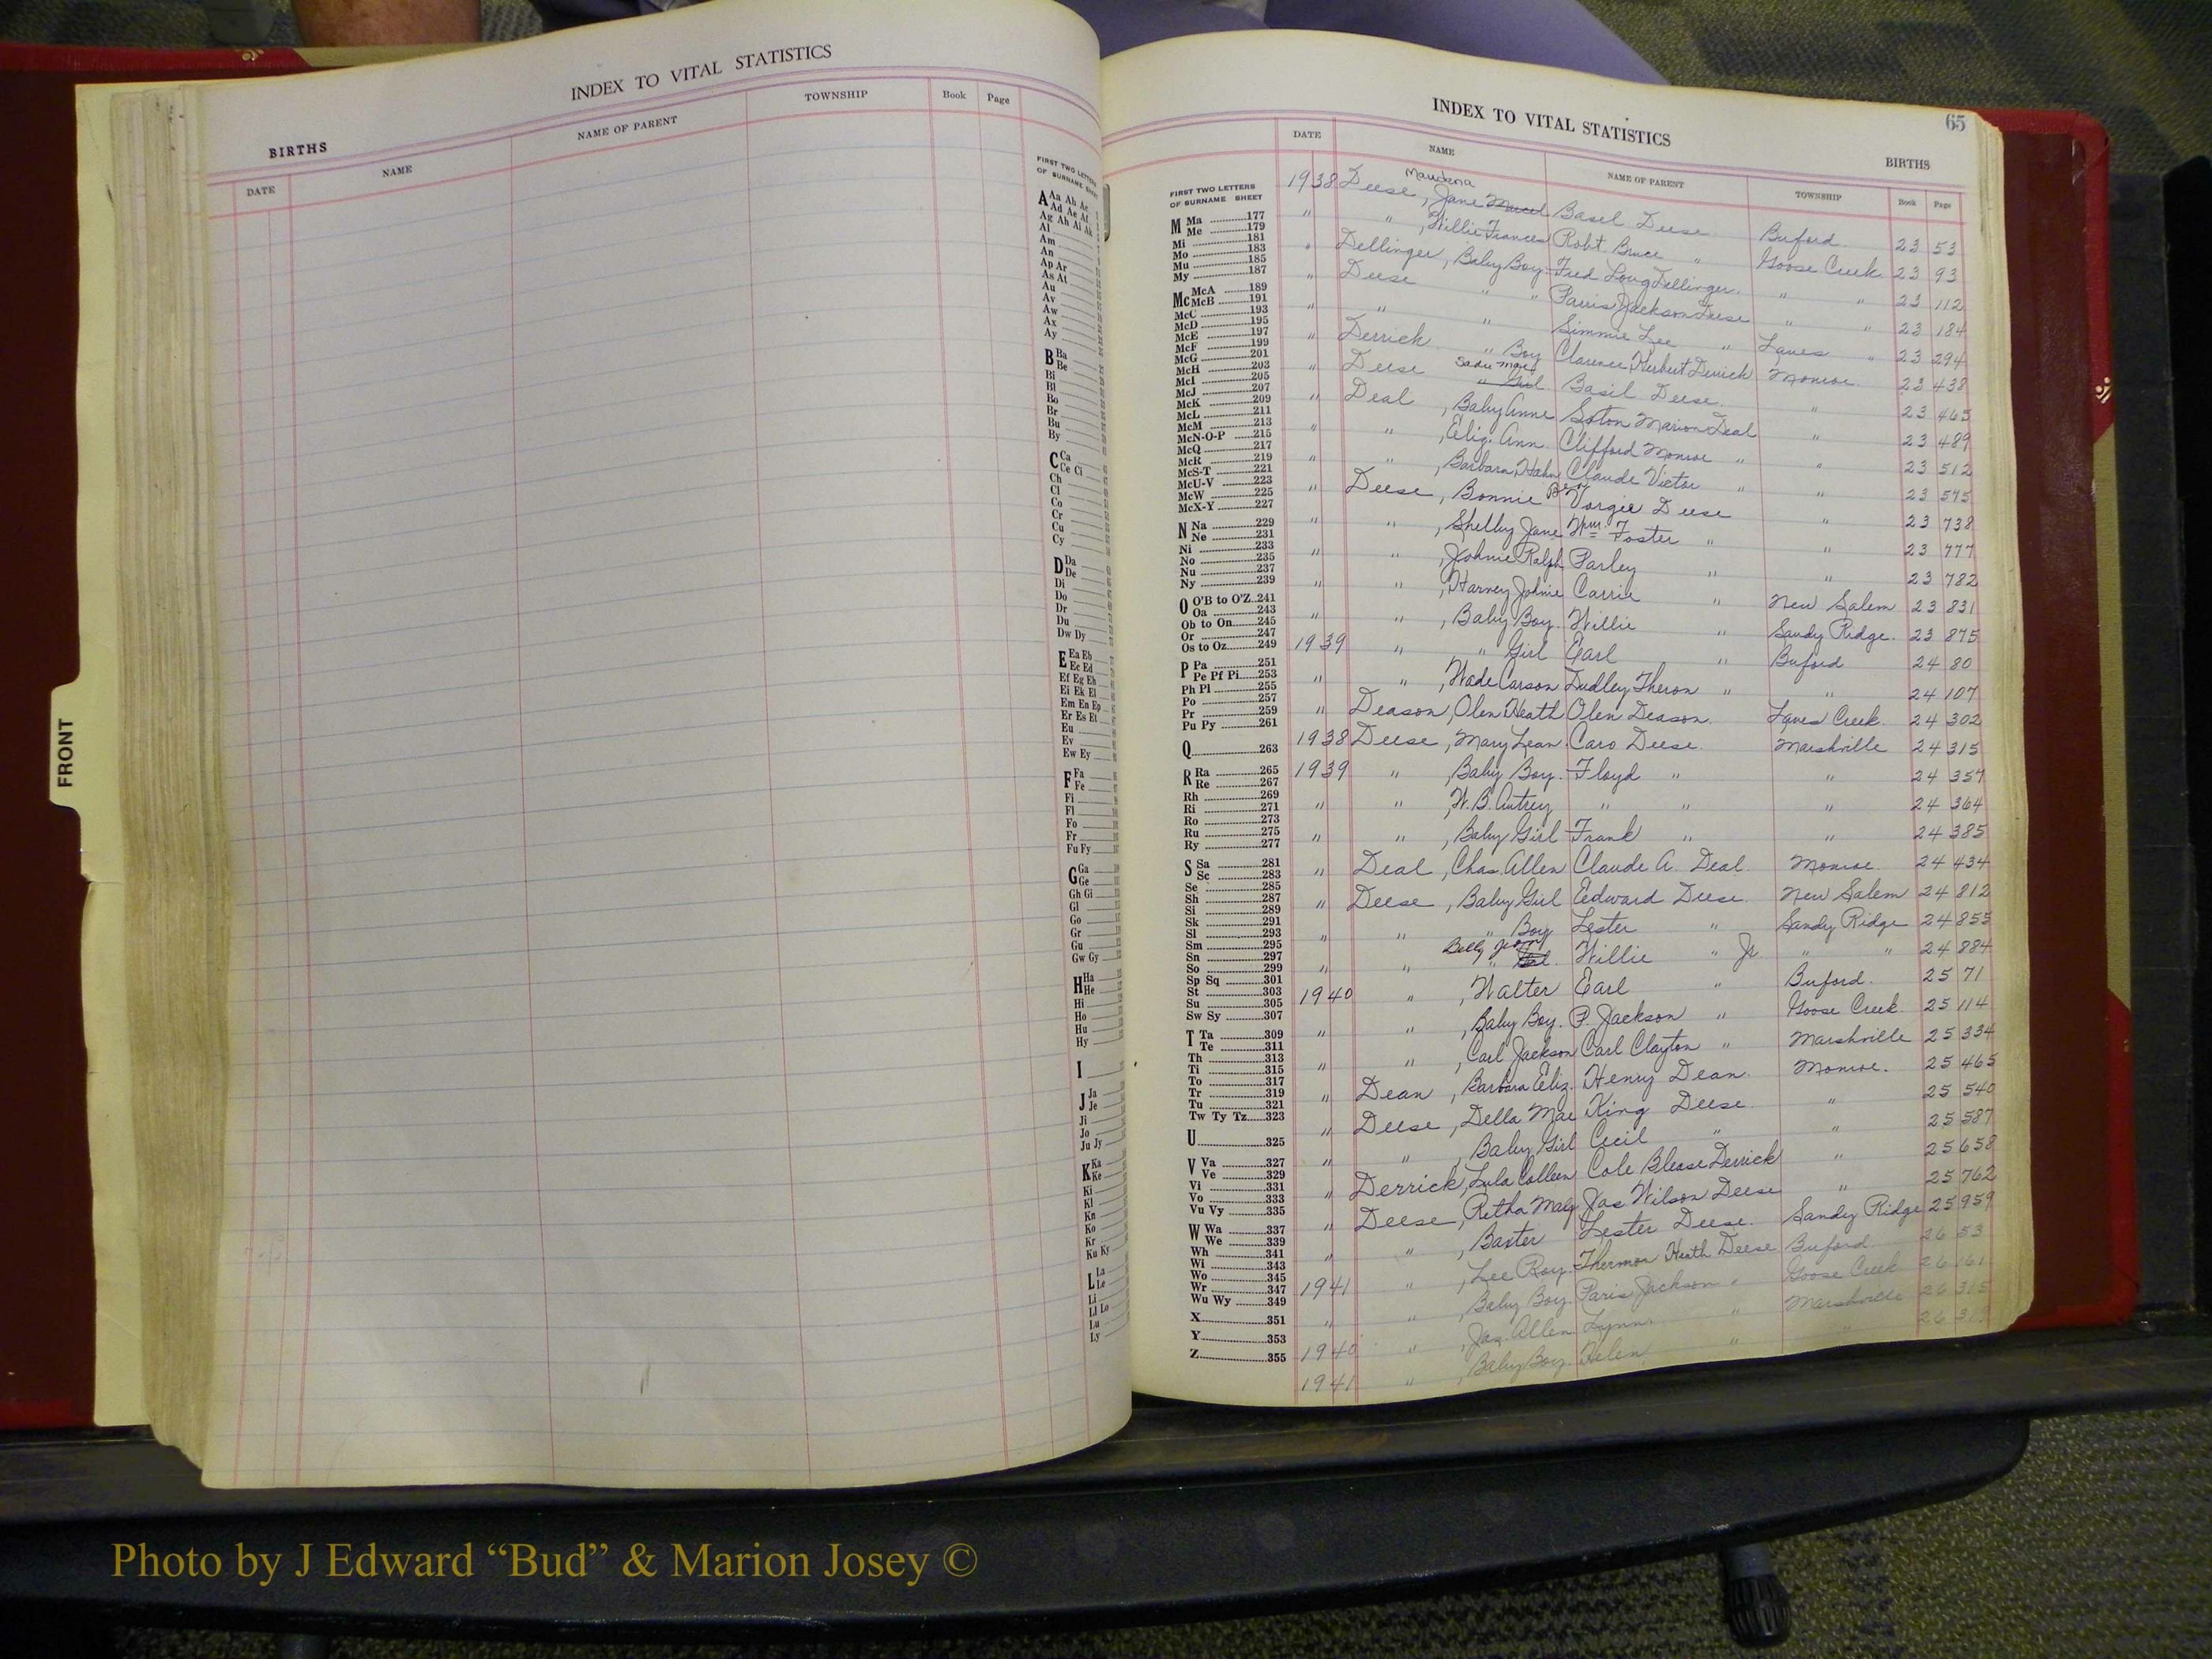 INDEX TO VITAL STATISTICS
BIRTHS
DATE NAME NAME OF PARENT TOWNSHIP Book Page
FIRST TWO LETTERS
OF SURNAME SHEET
A Aa Ab Ac
Ad Ae Af
Ag Ah Ai Ak
Al
Am
An
Ap Ar
As At
Au
Av
Aw
Ax
Ay
B Ba
Be
Bi
Bl
Bo
Br
Bu
By
C Ca
Ce Ci
Ch
Cl
Co
Cr
Cu
Cy
D Da
De
Di
Do
Dr
Du
Dw Dy
E Ea Eb
Ec Ed
Ef Eg Eh
Ei Ek El
Em En Ep
Er Es Et
Eu
Ev
Ew Ey
F Fa
Fe
Fi
Fl
Fo
Fr
Fu Fy
G Ga
Ge
Gh Gi
Gl
Go
Gr
Gu
Gw Gy
H Ha
He
Hi
Ho
Hu
Hy
I
J Ja
Je
Ji
Jo
Ju Jy
K Ka
Ke
Ki
Kl
Kn
Ko
Kr
Ku Ky
L La
Le
Li
Ll Lo
Lu
Ly
FRONT
INDEX TO VITAL STATISTICS
65
BIRTHS
DATE NAME NAME OF PARENT TOWNSHIP Book Page
FIRST TWO LETTERS
OF SURNAME SHEET
M Ma 177
Me 179
Mi 181
Mo 183
Mu 185
My 187
Mc McA 189
McB 191
McC 193
McD 195
McE 197
McF 199
McG 201
McH 203
McI 205
McJ 207
McK 209
McL 211
McM 213
McN-O-P 215
McQ 217
McR 219
McS-T 221
McU-V 223
McW 225
McX-Y 227
N Na 229
Ne 231
Ni 233
No 235
Nu 237
Ny 239
O O'B to O'Z 241
Oa 243
Ob to On 245
Or 247
Os to Oz 249
P Pa 251
Pe Pf Pi 253
Ph Pl 255
Po 257
Pr 259
Pu Py 261
Q 263
R Ra 265
Re 267
Rh 269
Ri 271
Ro 273
Ru 275
Ry 277
S Sa 281
Sc 283
Se 285
Sh 287
Si 289
Sk 291
Sl 293
Sm 295
Sn 297
So 299
Sp Sq 301
St 303
Su 305
Sw Sy 307
T Ta 309
Te 311
Th 313
Ti 315
To 317
Tr 319
Tu 321
Tw Ty Tz 323
U 325
V Va 327
Ve 329
Vi 331
Vo 333
Vu Vy 335
W Wa 337
We 339
Wh 341
Wi 343
Wo 345
Wr 347
Wu Wy 349
X 351
Y 353
Z 355
Maudena
1938 Deese, Jane Basil Deese Buford 23 53
" " , Willie Frances Robt. Bruce " Goose Creek 23 93
" Dellinger, Baby Boy Fred Long Dellinger " " 23 112
" Deese " " Parris Jackson Deese " " 23 184
" " " Simmie Lee " Lanes " 23 294
" Derrick " Boy Clarence Herbert Derrick Monroe 23 438
Sadie Mae
" Deese " Girl Basil Deese " 23 465
" Deal, Baby Anne Soton Marion Deal " 23 489
" " , Eliz. Ann Clifford Monroe " " 23 512
" " , Barbara Hahn Claude Victor " " 23 575
" Deese, Bonnie Vorgie Deese " 23 738
" " , Shelby Jane Wm. Foster " " 23 777
" " , Johnie Ralph Farley " " 23 782
" " , Harvey Johnie Carrie " New Salem 23 831
" " , Baby Boy Willie " Sandy Ridge 23 875
1939 " " Girl Earl " Buford 24 80
" " , Wade Carson Dudley Theron " " 24 107
" Deason, Olen Heath Olen Deason Lanes Creek 24 302
1938 Deese, Mary Lean Caro Deese Marshville 24 315
1939 " , Baby Boy Floyd " " 24 357
" " , W. B. Autrey " " " 24 364
" " , Baby Girl Frank " " 24 385
" Deal, Chas. Allen Claude A. Deal Monroe 24 434
" Deese, Baby Girl Eedward Deese New Salem 24 812
" " " Boy Lester " Sandy Ridge 24 855
Betty Jean
" " " Willie " Jr. " " 24 884
1940 " , Walter Earl " Buford 25 71
" " , Baby Boy P. Jackson " Goose Creek 25 114
" " , Carl Jackson Carl Clayton " Marshville 25 334
" Dean, Barbara Eliz. Henry Dean Monroe 25 465
" Deese, Della Mae King Deese " 25 540
" " , Baby Girl Cecil " " 25 587
" Derrick, Lula Colleen Cole Blease Derrick " 25 658
" Deese, Retha Jas Wilson Deese " 25 762
" " , Baxter Lester Deese Sandy Ridge 25 959
1941 " , Lee Roy Thermon Heath Deese Buford 26 53
" " , Baby Boy Paris Jackson " Goose Creek 26 161
1940 " , Jas. Allen Lynn " Marshville 26 315
1941 " , Baby Boy Helen " " 26
Photo by J Edward “Bud” & Marion Josey ©